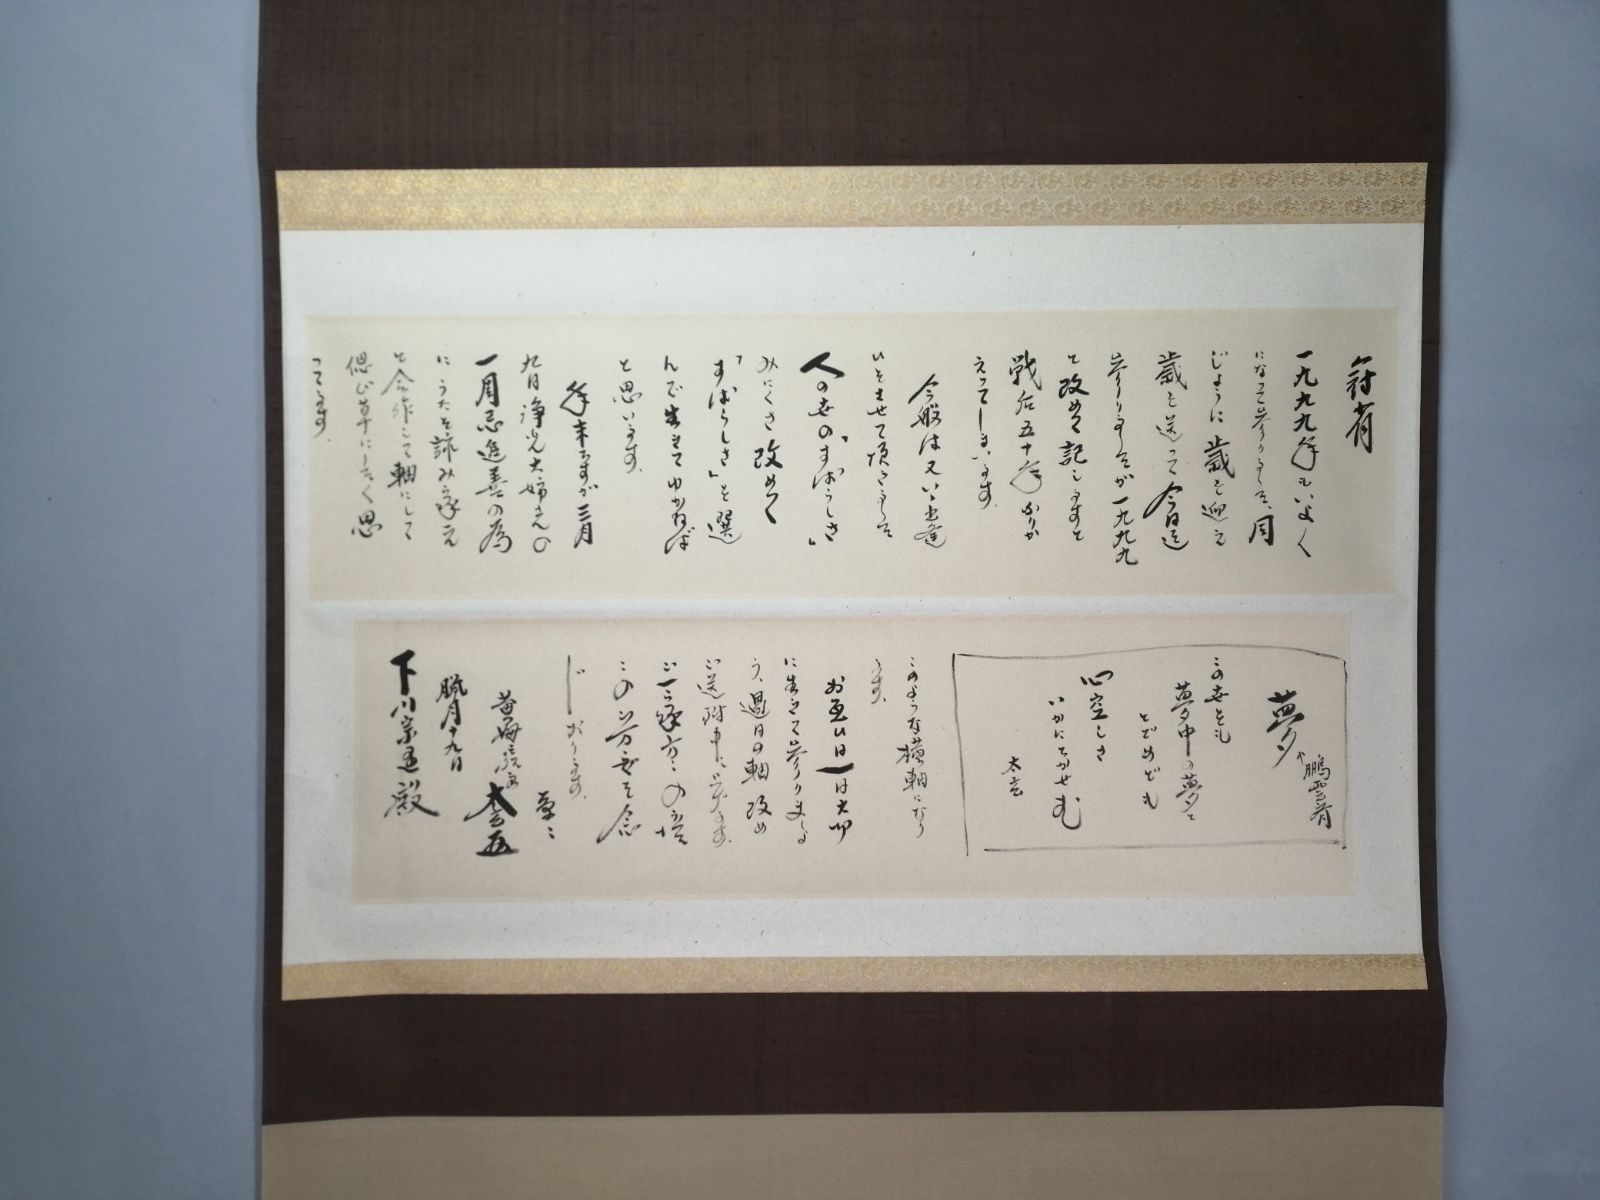 冠省
一九九九年もいよ〱
になって参りました、同
じように歳を迎え
歳を送って今日迄
参りましたが一九九九
と改めて記しますと
戦后五十年余りか
えってしまいます、
今般は又いゝ出逢
いをさせて頂きました
人の世の「すばらしさ」
みにくさ改めて
「すばらしさ」を選
んで生きてゆかねば
と思います、
年末ですが三月
九日浄光大姉さんの
一月忌追善の為
にうたを詠み
と合作して軸にして
偲び草にしたく思
ってます、
夢や 鵬雲斎
この世をも
夢中の夢と
とどめども
心空しき
いかにちかせむ
太玄
このような横軸になり
ます、
お互い日一日は大切
に生きて参りましょ
う、過日の軸改め
ご送附申し上げます、
ご一家方々の
この芳せを念
じおります、
草々
太玄
臘月十九日
下川宗 殿